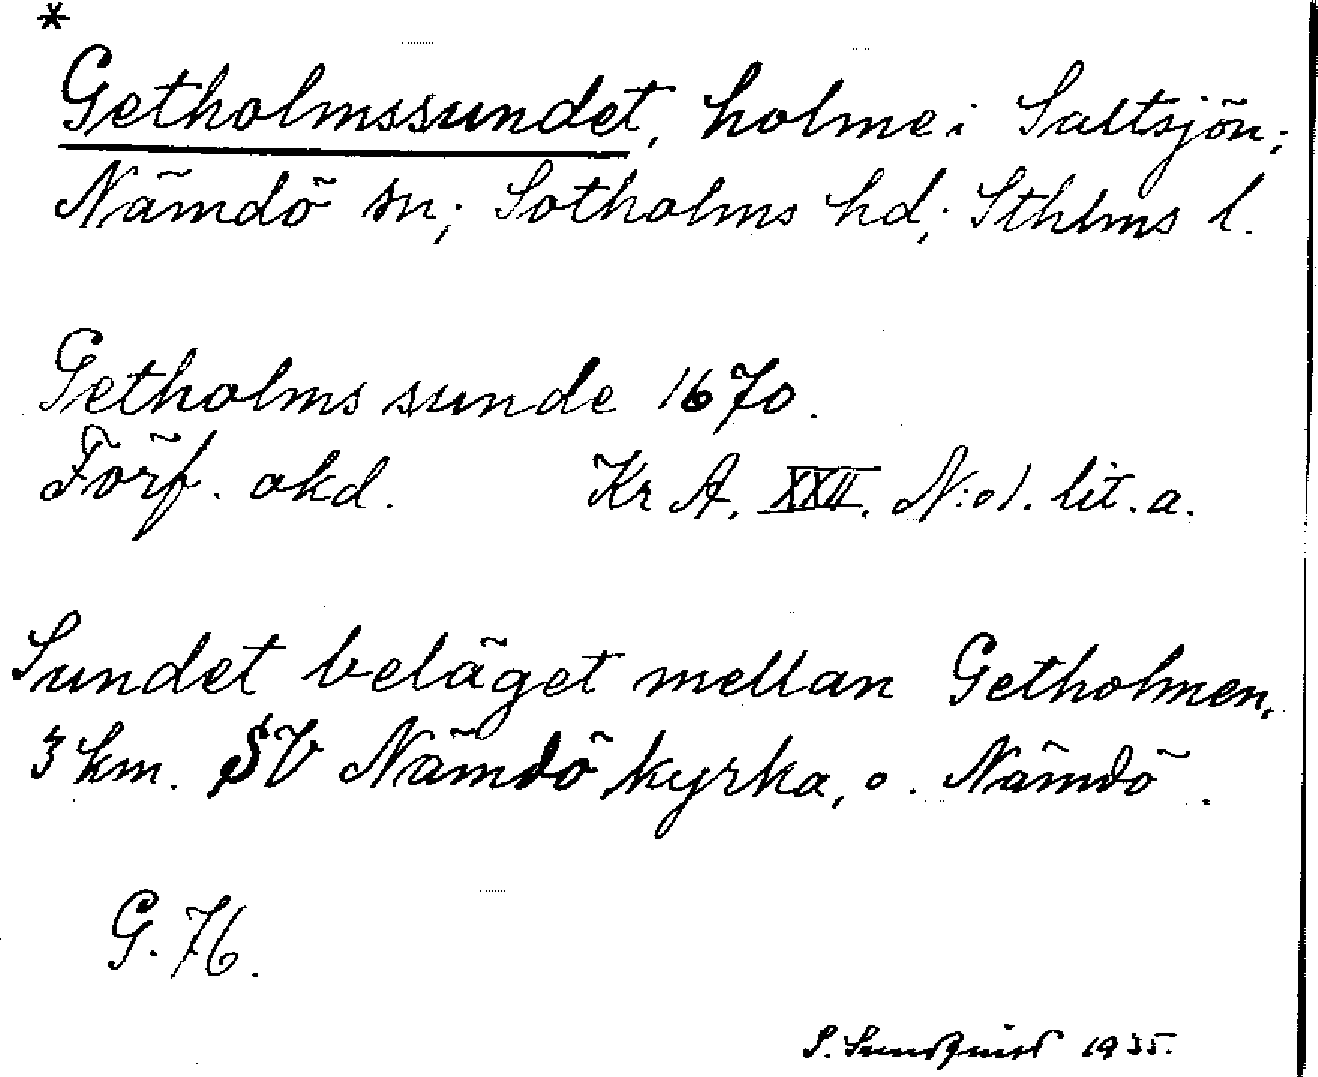 *
Getholmssundet, holme i Saltsjön;
Nämdö sn; Sotholms hd; Sthlms l.
Getholms sunde 1670.
Förf. okd. Kr A. XXII. N:o 1. lit. a.
Sundet beläget mellan Getholmen,
3 km. SV Nämdö kyrka, o. Nämdö.
G. 76.
S. Sundquist 1935.